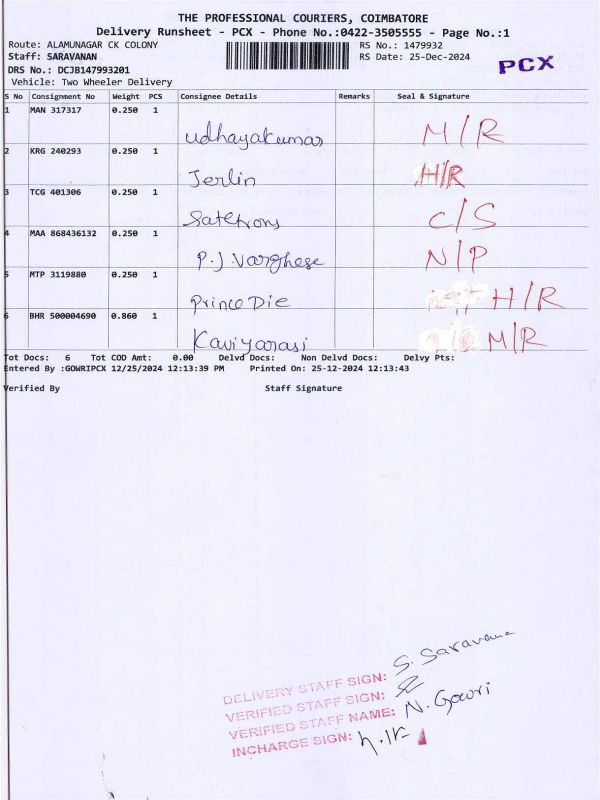 THE PROFESSIONAL COURIERS, COIMBATORE
Delivery Runsheet - PCX - Phone No.:0422-3505555 - Page No.:1
Route: ALAMUNAGAR CK COLONY RS No.: 1479932
Staff: SARAVANAN RS Date: 25-Dec-2024
PCX
DRS No.: DCJB147993201
Vehicle: Two Wheeler Delivery
S No Consignment No Weight PCS Consignee Details Remarks Seal & Signature
1 MAN 317317 0.250 1 Udhayakumar M/R
2 KRG 240293 0.250 1 Jerlin H/R
3 TCG 401306 0.250 1 C/S
4 MAA 868436132 0.250 1 P.J.Varghese N/P
5 MTP 3119880 0.250 1 Prince Die H/R
6 BHR 500004690 0.860 1 Kaviyarasi M/R
Tot Docs: 6 Tot COD Amt: 0.00 Delvd Docs: Non Delvd Docs: Delvy Pts:
Entered By :GOWRIPCX 12/25/2024 12:13:39 PM Printed On: 25-12-2024 12:13:43
Verified By Staff Signature
DELIVERY STAFF SIGN: S. Saravana
VERIFIED STAFF SIGN:
VERIFIED STAFF NAME: N. Gowri
INCHARGE SIGN: